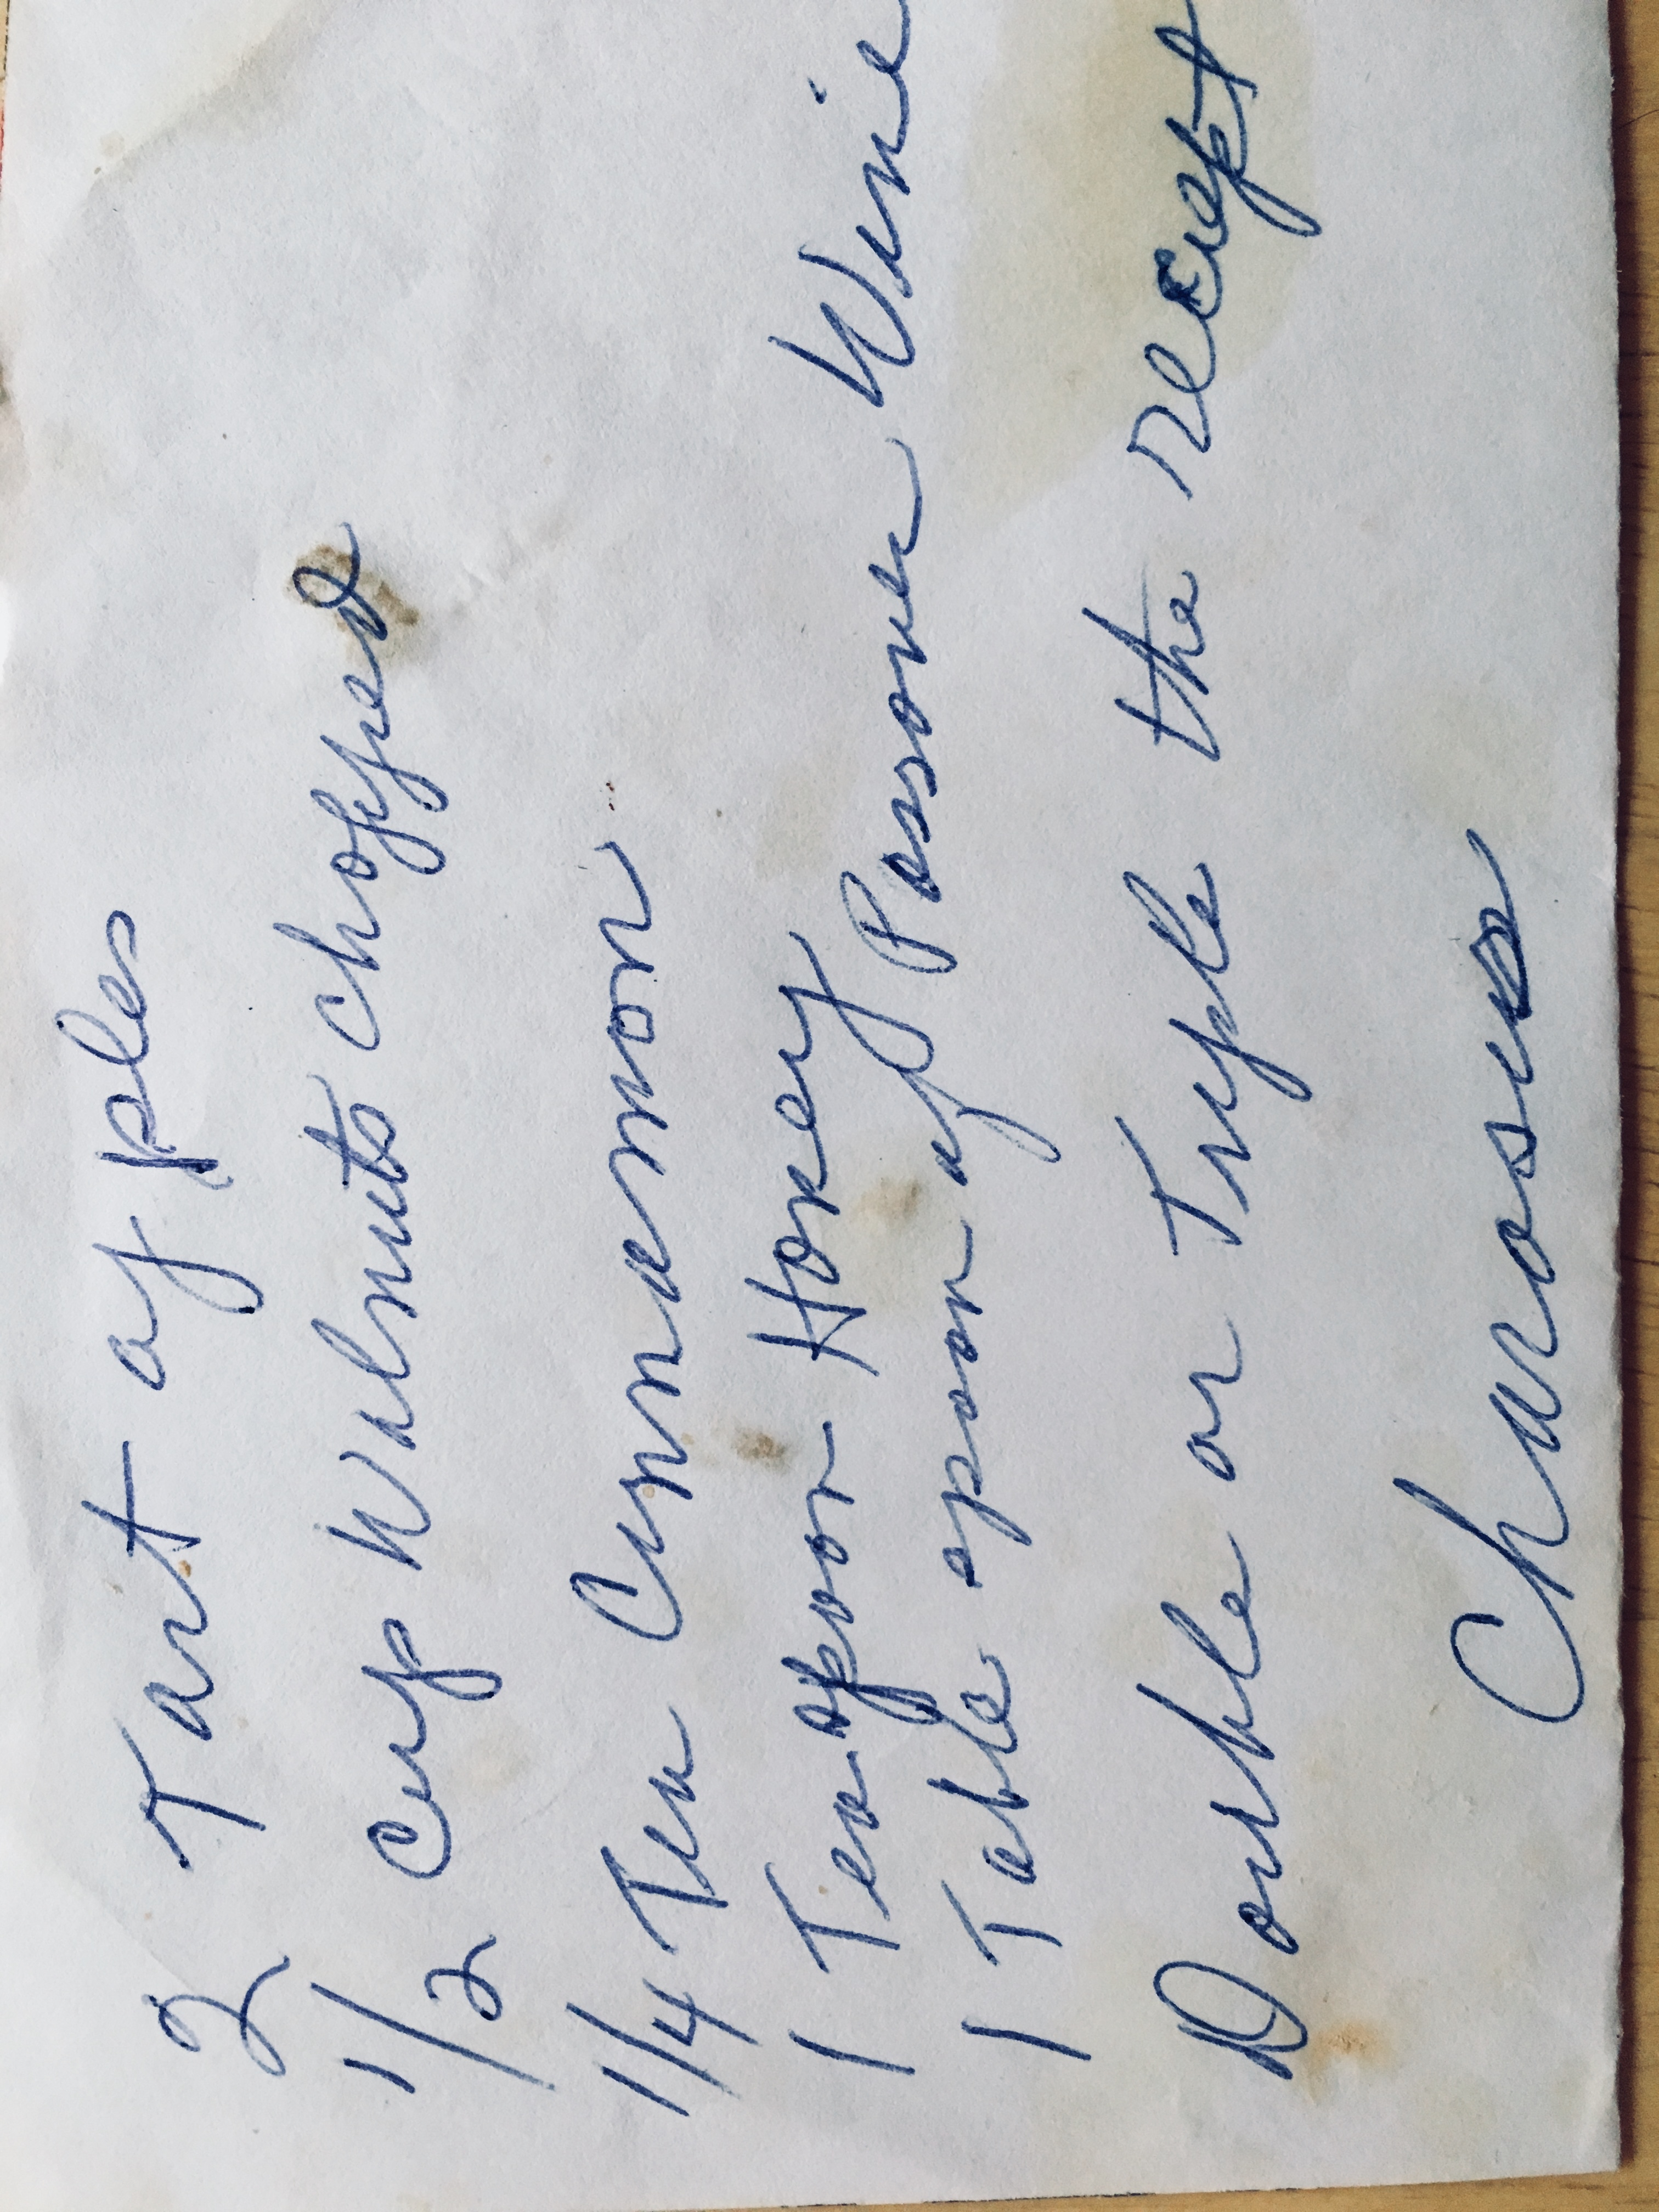 2 Tart apples
1/2 cup Walnuts chopped
1/4 Tea Cinnamon
1 Teaspoon Honey
1 Table spoon of Passover Wine
Double or Triple the reciept
Charoses